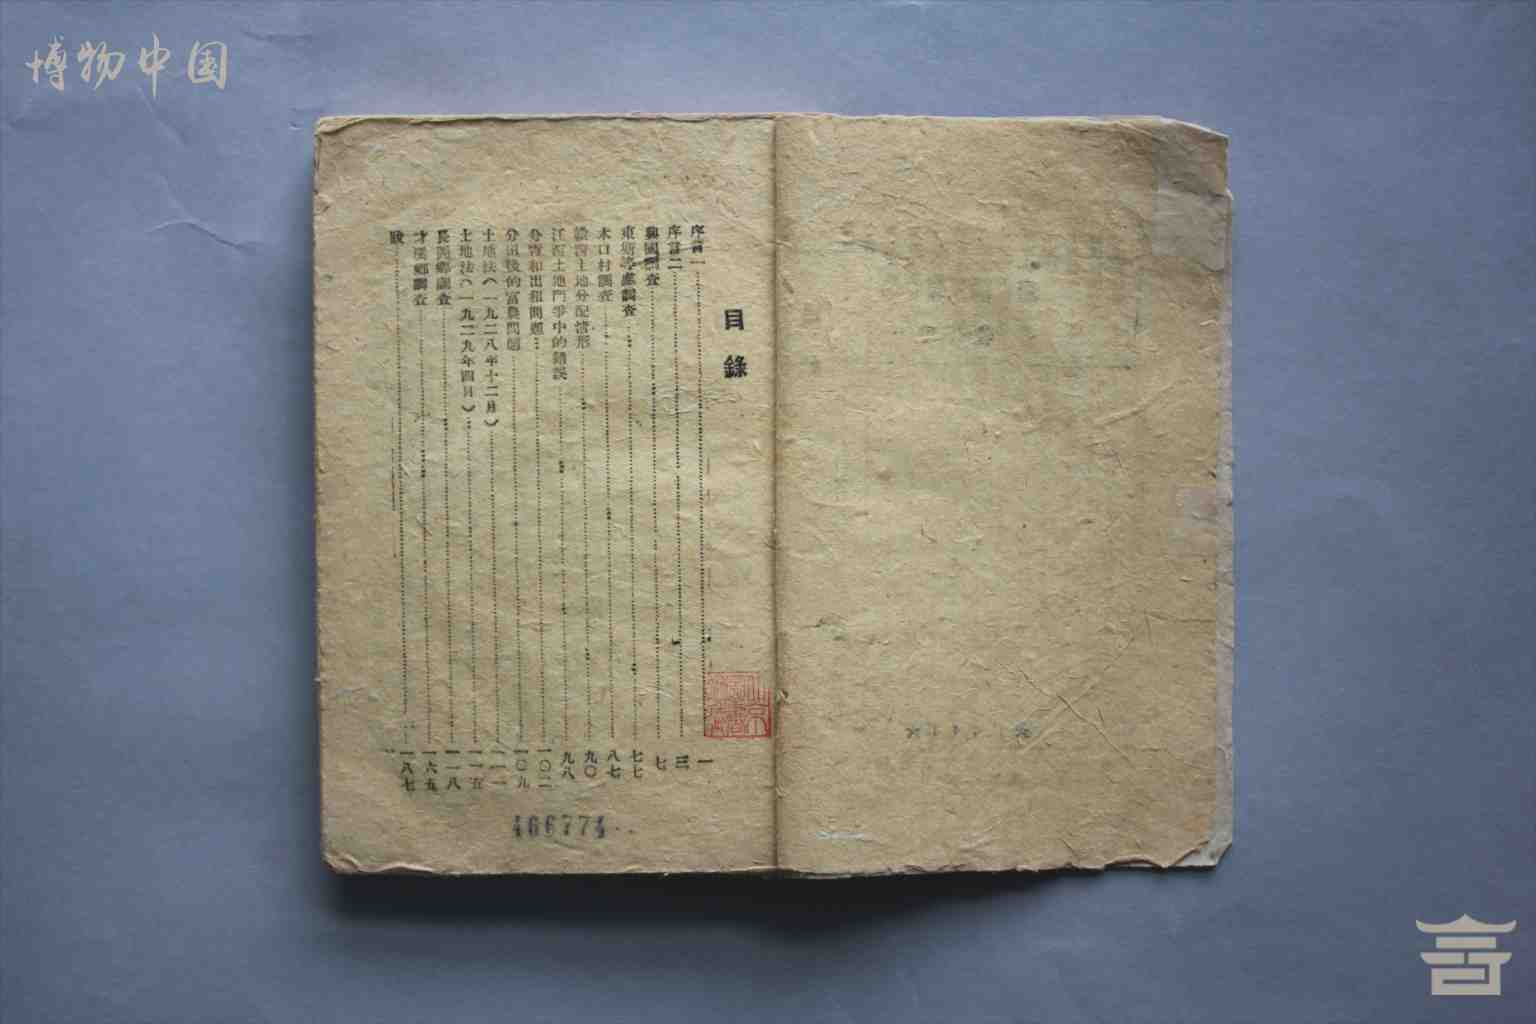 博物中国
目錄
序言一……一
序言二……三
興國調查……七
東塘等處調查……七七
木口村調查……八七
贛西土地分配情形……九〇
江西土地鬥爭中的錯誤……九八
分青和出租問題……一〇二
分田後的富農問題……一〇九
土地法（一九二八年十二月）……一一一
土地法（一九二九年四月）……一一五
長岡鄉調查……一一八
才溪鄉調查……一六五
跋……一八七
466774